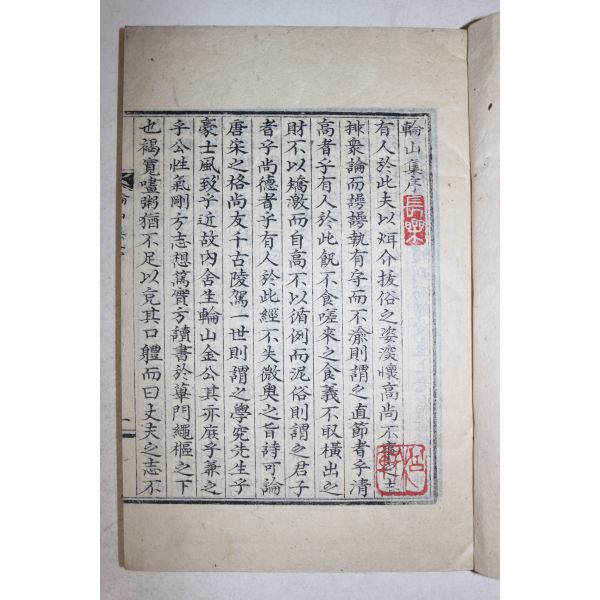 輪山集序
長樂
有人於此夫以耿介拔俗之姿奕懷高尚不之志
排衆論而謾謾執有守而不渝則謂之直節者乎淸
高者乎有人於此飢不食嗟來之食義不取橫出之
財不以矯激而自高不以循例而泥俗則謂之君子
者乎尚德者乎有人於此經不失微奧之旨詩可論
唐宋之格尚友千古陵駕一世則謂之學究先生乎
豪士風致乎近故內舍生輪山金公其亦庶乎兼之
乎公性氣剛方志想篤實方讀書於蓽門繩樞之下
也褐寬晝粥猶不足以充其口軆而曰丈夫之志不